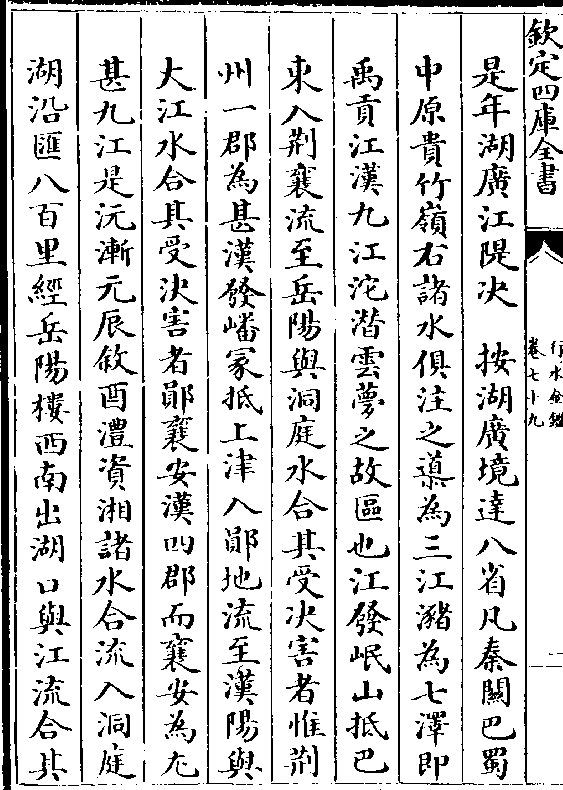 欽定四庫全書
行水金鑑
卷七十九
二
是年湖廣江隄決　按湖廣境達八省凡秦關巴蜀
中原貴竹嶺右諸水俱注之導為三江瀦為七澤即
禹貢江漢九江沱潛雲夢之故區也江發岷山抵巴
東入荆襄流至岳陽與洞庭水合其受決害者惟荆
州一郡為甚漢發嶓冢抵上津入鄖地流至漢陽與
大江水合其受決害者鄖襄安漢四郡而襄安為尤
甚九江是沅漸元辰敘酉澧資湘諸水合流入洞庭
湖沿匯八百里經岳陽樓西南出湖口與江流合其